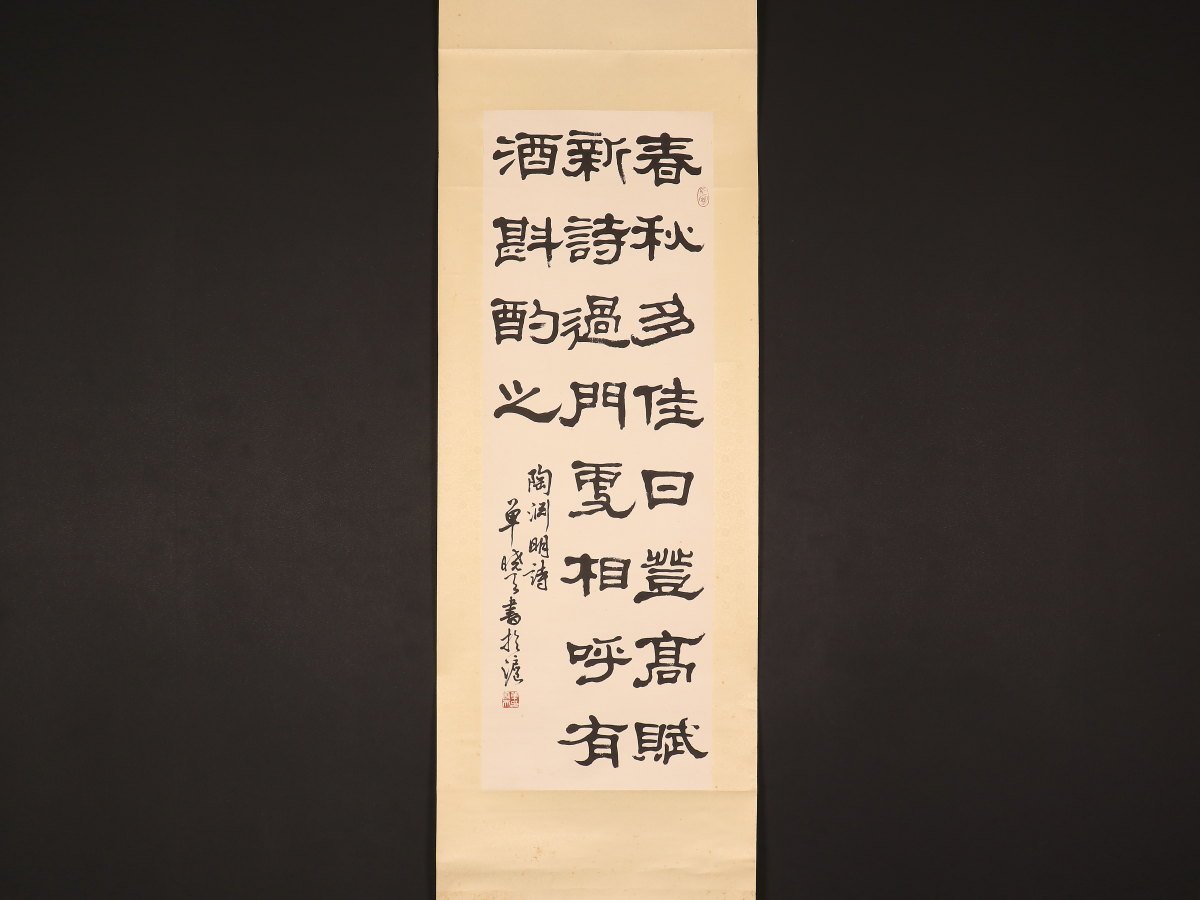 春秋多佳日登高賦
新詩過門更相呼有
酒斟酌之
陶渊明詩
單曉天書於滬